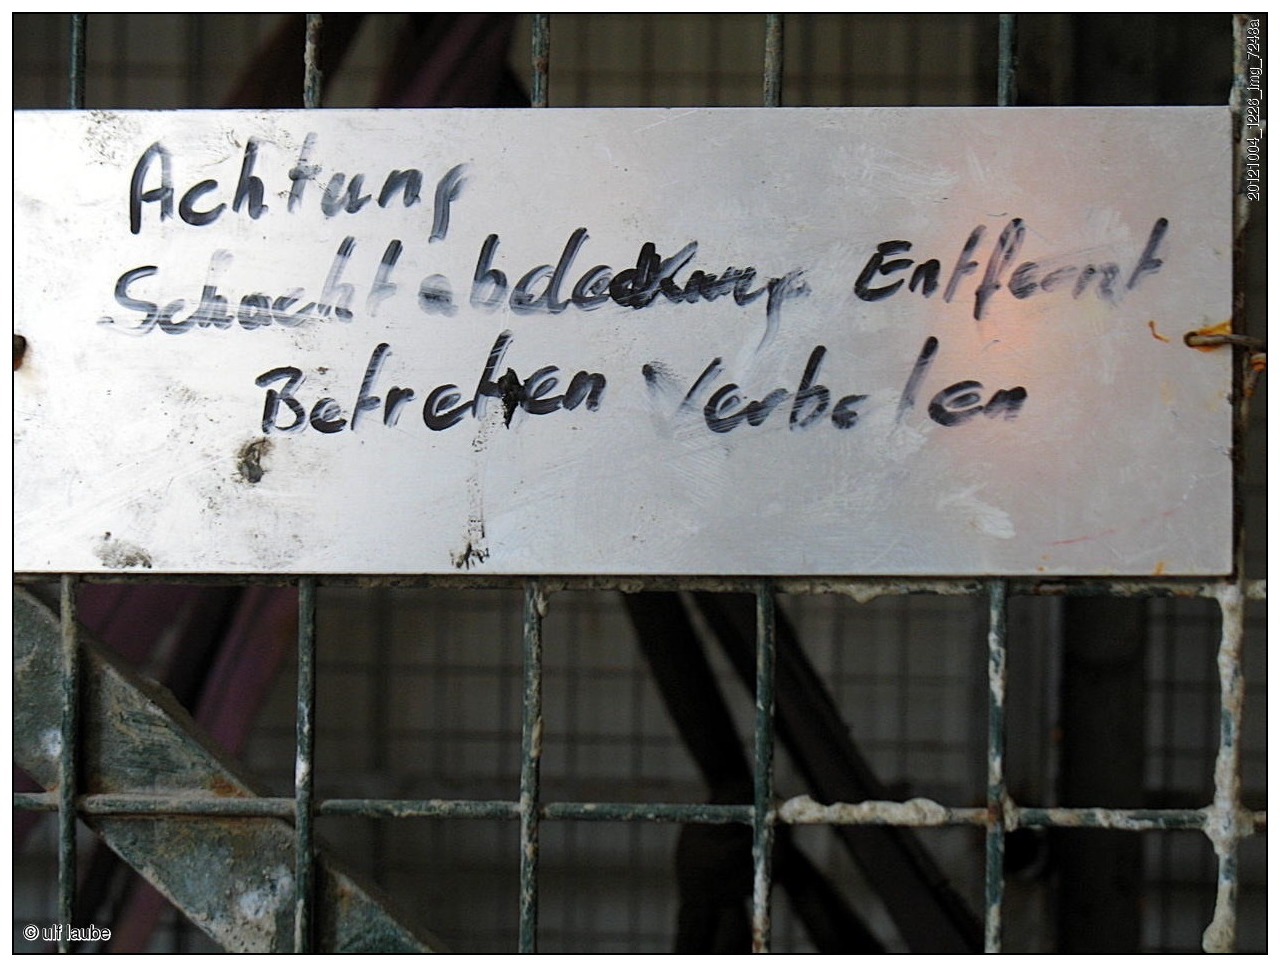 Achtung
Schachtabdeckung Entfernt
Betreten Verboten
20121004_1226_img_7248a
© ulf laube